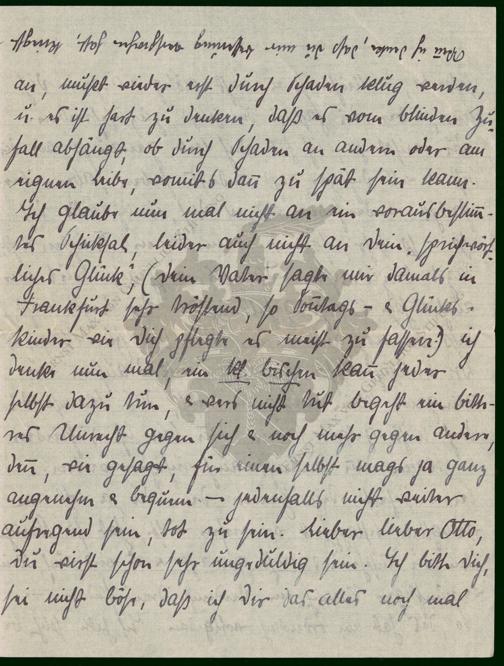 an, mußt wieder erst durch Schaden klug werden,
u. es ist hart zu denken, daß es vom blinden Zu-
fall abhängt, ob durch Schaden an andern oder am
eignen Leibe, womit's dann zu spät sein kann.
Ich glaube nun mal nicht an ein vorausbestimm-
tes Schicksal, leider auch nicht an Dein „sprichwört-
liches Glück", (Dein Vater sagte mir damals in
Frankfurt sehr tröstend, so Sonntags- & Glücks-
kinder wie Dich pflegte es meist zu fassen) ich
denke nun mal, ein kl. bischen kann jeder
selbst dazu tun, & wer's nicht tut begeht ein bitte-
res Unrecht gegen sich & noch mehr gegen andere,
denn, wie gesagt, für einen selbst mags ja ganz
angenehm & bequem — jedenfalls nicht weiter
aufregend sein, tot zu sein. Lieber lieber Otto,
du wirst schon sehr ungeduldig sein. Ich bitte Dich,
sei nicht böse, daß ich Dir das alles noch mal